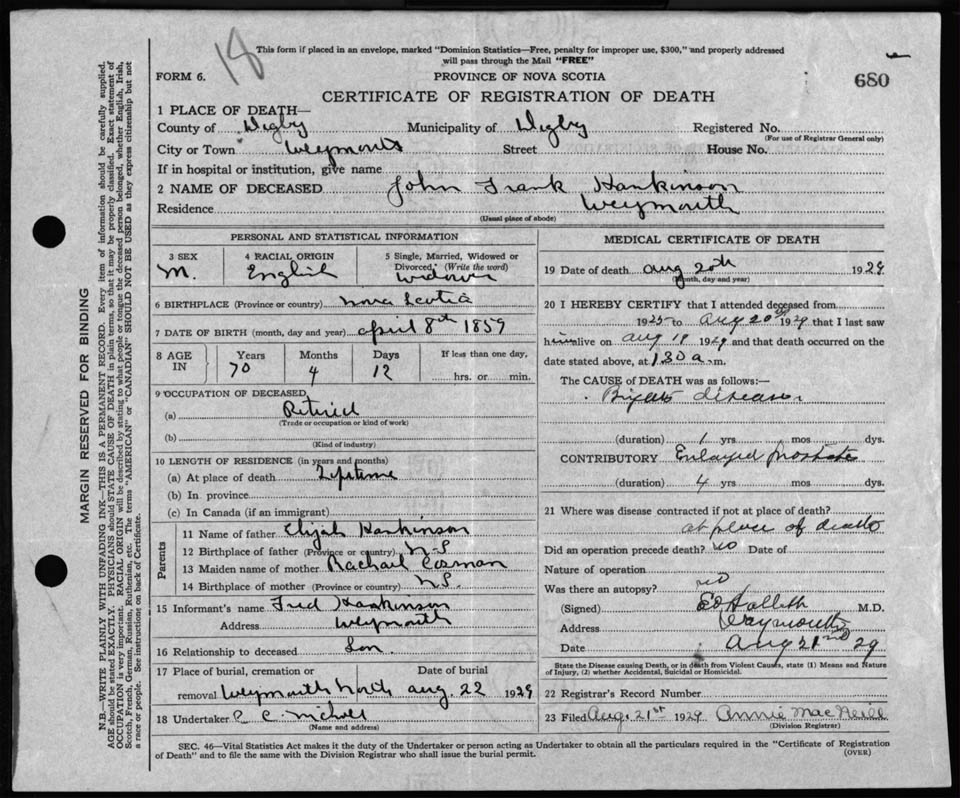 18
This form if placed in an envelope, marked "Dominion Statistics—Free, penalty for improper use, $300," and properly addressed
will pass through the Mail "FREE"
FORM 6. PROVINCE OF NOVA SCOTIA 680
CERTIFICATE OF REGISTRATION OF DEATH
1 PLACE OF DEATH—
County of Digby Municipality of Digby Registered No.
(For use of Registrar General only)
City or Town Weymouth Street House No.
If in hospital or institution, give name
2 NAME OF DECEASED John Frank Hankinson
Residence Weymouth
(Usual place of abode)
PERSONAL AND STATISTICAL INFORMATION
3 SEX 4 RACIAL ORIGIN 5 Single, Married, Widowed or
Divorced (Write the word)
M. English widower
6 BIRTHPLACE (Province or country) Nova Scotia
7 DATE OF BIRTH (month, day and year) April 8th 1859
8 AGE IN Years Months Days If less than one day,
70 4 12 hrs. or min.
9 OCCUPATION OF DECEASED
(a) Retired
(Trade or occupation or kind of work)
(b)
(Kind of industry)
10 LENGTH OF RESIDENCE (in years and months)
(a) At place of death Lifetime
(b) In province
(c) In Canada (if an immigrant)
Parents
11 Name of father Elijah Hankinson
12 Birthplace of father (Province or country) N.S
13 Maiden name of mother Rachael Cosman
14 Birthplace of mother (Province or country) N.S.
15 Informant's name Fred Hankinson
Address Weymouth
16 Relationship to deceased Son
17 Place of burial, cremation or Date of burial
removal Weymouth North Aug. 22 1929
18 Undertaker
(Name and address)
MEDICAL CERTIFICATE OF DEATH
19 Date of death Aug 20th 1929
(Month, day and year)
20 I HEREBY CERTIFY that I attended deceased from
1925 to Aug 20th 1929 that I last saw
him alive on Aug 19 1929 and that death occurred on the
date stated above, at 1 30 a. m.
The CAUSE OF DEATH was as follows:—
Brights disease
(duration) 1 yrs. mos. dys.
CONTRIBUTORY Enlarged Prostate
(duration) 4 yrs. mos. dys.
21 Where was disease contracted if not at place of death?
at place of death
Did an operation precede death? no Date of
Nature of operation
Was there an autopsy? no
(Signed) M.D.
Address Weymouth
Date Aug 29
State the Disease causing Death, or in death from Violent Causes, state (1) Means and Nature
of Injury, (2) whether Accidental, Suicidal or Homicidal.
22 Registrar's Record Number
23 Filed Aug. 21st 1929 Annie MacNeill
(Division Registrar)
SEC. 46—Vital Statistics Act makes it the duty of the Undertaker or person acting as Undertaker to obtain all the particulars required in the "Certificate of Registration
of Death" and to file the same with the Division Registrar who shall issue the burial permit. (OVER)
MARGIN RESERVED FOR BINDING
N.B.—WRITE PLAINLY WITH UNFADING INK—THIS IS A PERMANENT RECORD. Every item of information should be carefully supplied.
AGE should be stated EXACTLY. PHYSICIANS should STATE CAUSE OF DEATH in plain terms, so that it may be properly classified. Exact statement of
OCCUPATION is very important. RACIAL ORIGIN will be described by stating to what people or tongue the deceased person belonged, whether English, Irish,
Scotch, French, German, Russian, Ruthenian, etc. The terms "AMERICAN" or "CANADIAN" SHOULD NOT BE USED as they express citizenship but not
a race or people. See instructions on back of Certificate.